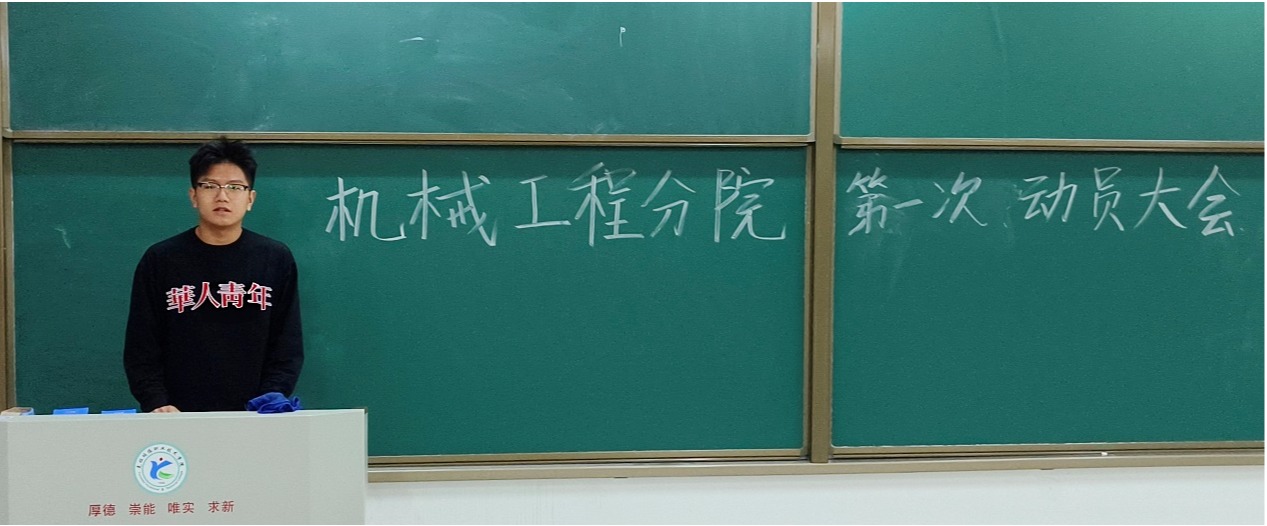 机械工程分院 第一次 动员大会
華人青年
厚德 崇能 唯实 求新